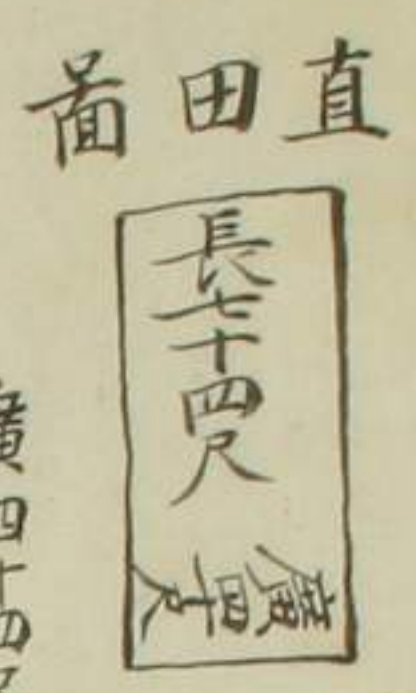 直田啚
長七十四尺
廣四十尺
廣四十四